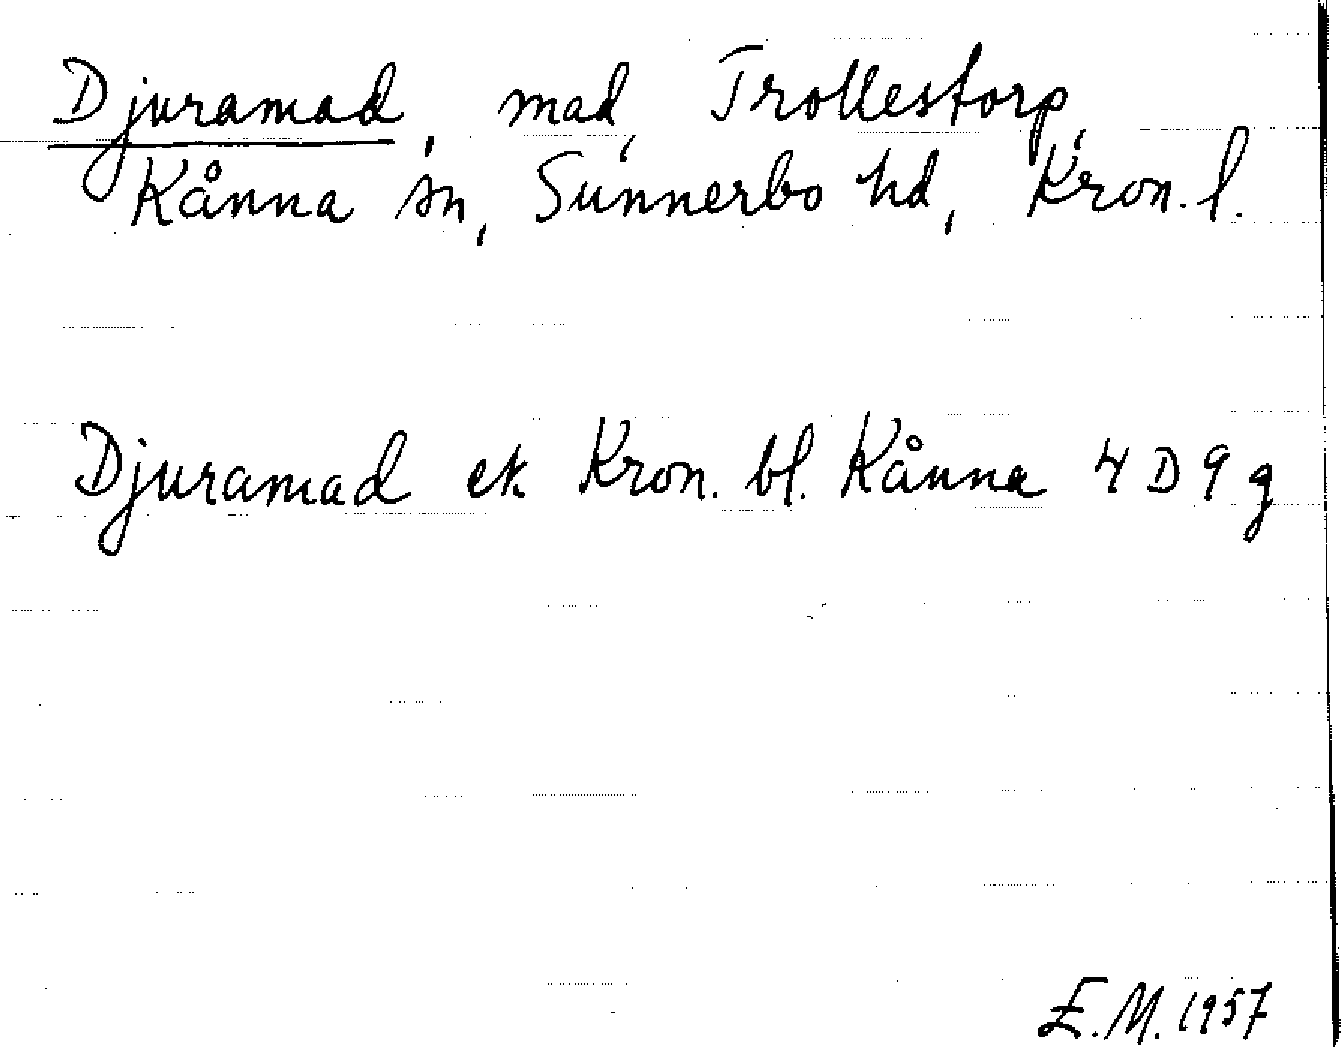 Djuramad, mad, Trollestorp,
Kånna sn, Sunnerbo hd, Kron. l.
Djuramad ek Kron. bl. Kånna 4 D 9 g
E.M. 1957